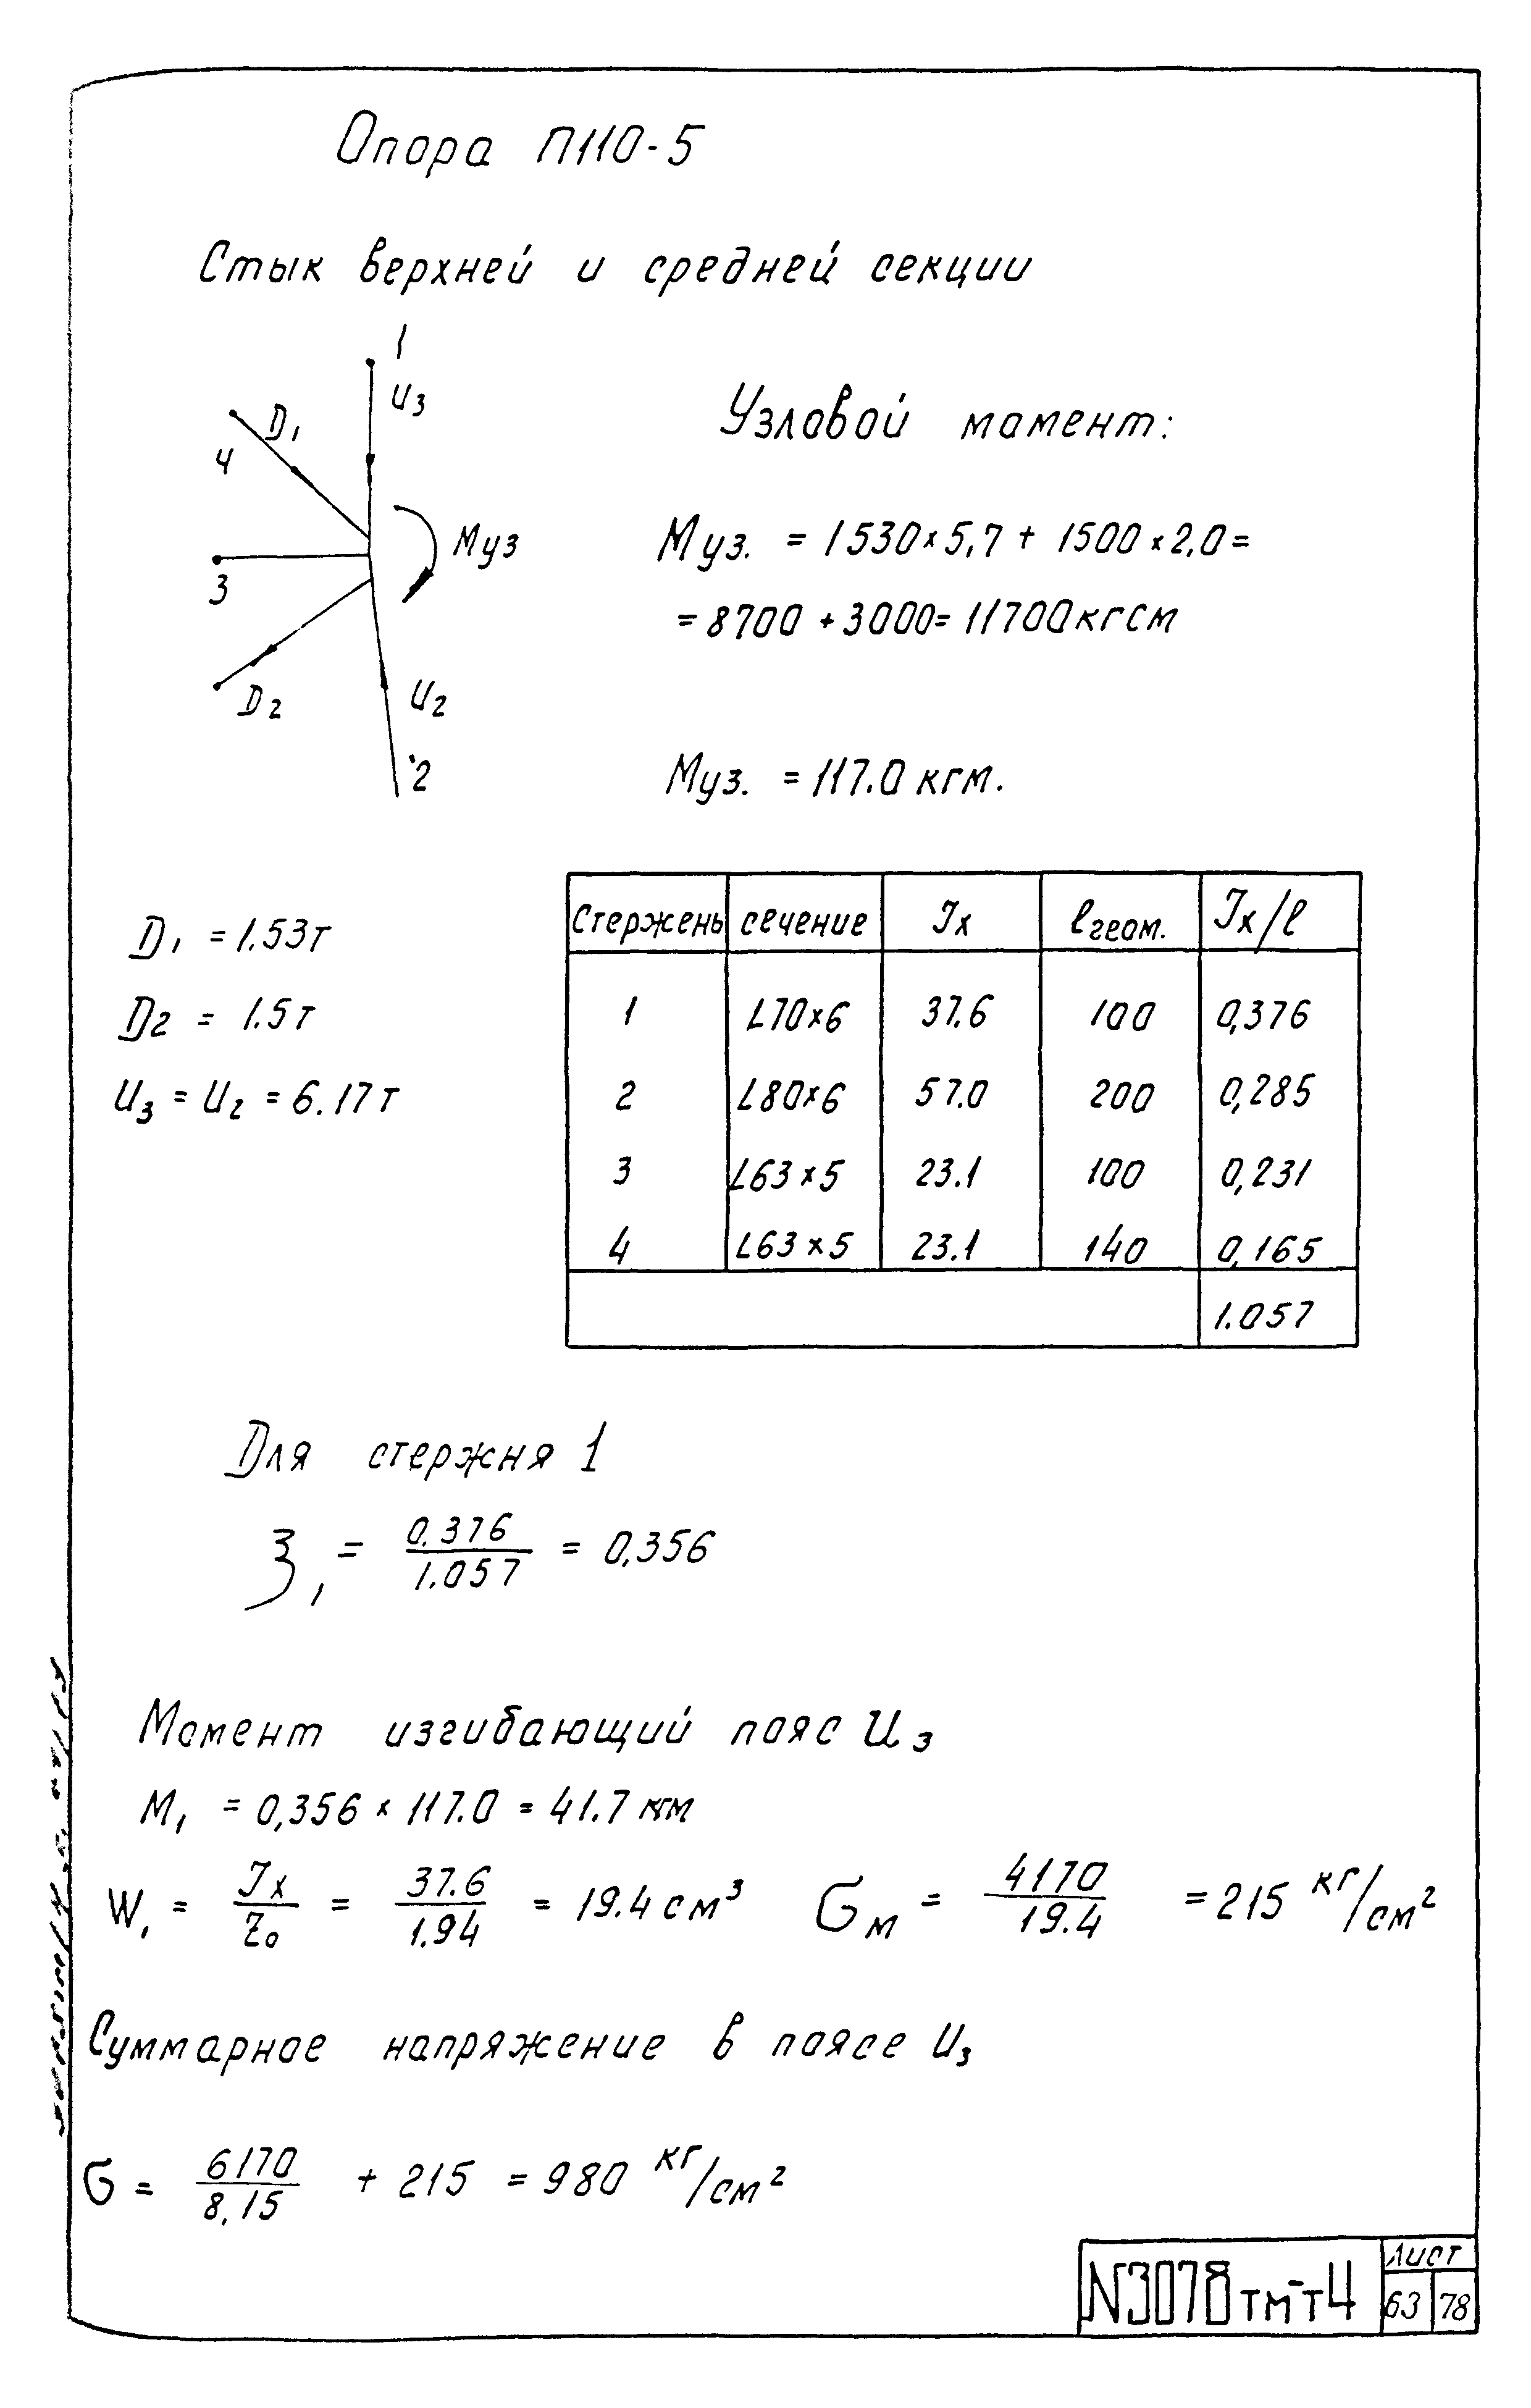 Опора П110-5
Стык верхней и средней секции
1
U3
D1
4
3
Муз
D2
U2
2
Узловой момент:
Муз. = 1530×5,7 + 1500×2,0 =
= 8700 + 3000 = 11700 кгсм
Муз. = 117.0 кгм.
D1 = 1.53т
D2 = 1.5т
U3 = U2 = 6.17т
Стержень сечение Jx ℓгеом. Jx/ℓ
1 L70×6 37.6 100 0,376
2 L80×6 57.0 200 0,285
3 L63×5 23.1 100 0,231
4 L63×5 23.1 140 0,165
1.057
Для стержня 1
ξ1 = 0.376/1.057 = 0,356
Момент изгибающий пояс U3
M1 = 0,356 × 117.0 = 41.7 кгм
W1 = Jx/Z0 = 37.6/1.94 = 19.4 см³ σм = 4170/19.4 = 215 кг/см²
Суммарное напряжение в поясе U3
σ = 6170/8,15 + 215 = 980 кг/см²
N3078тм-т4
Лист
63 78